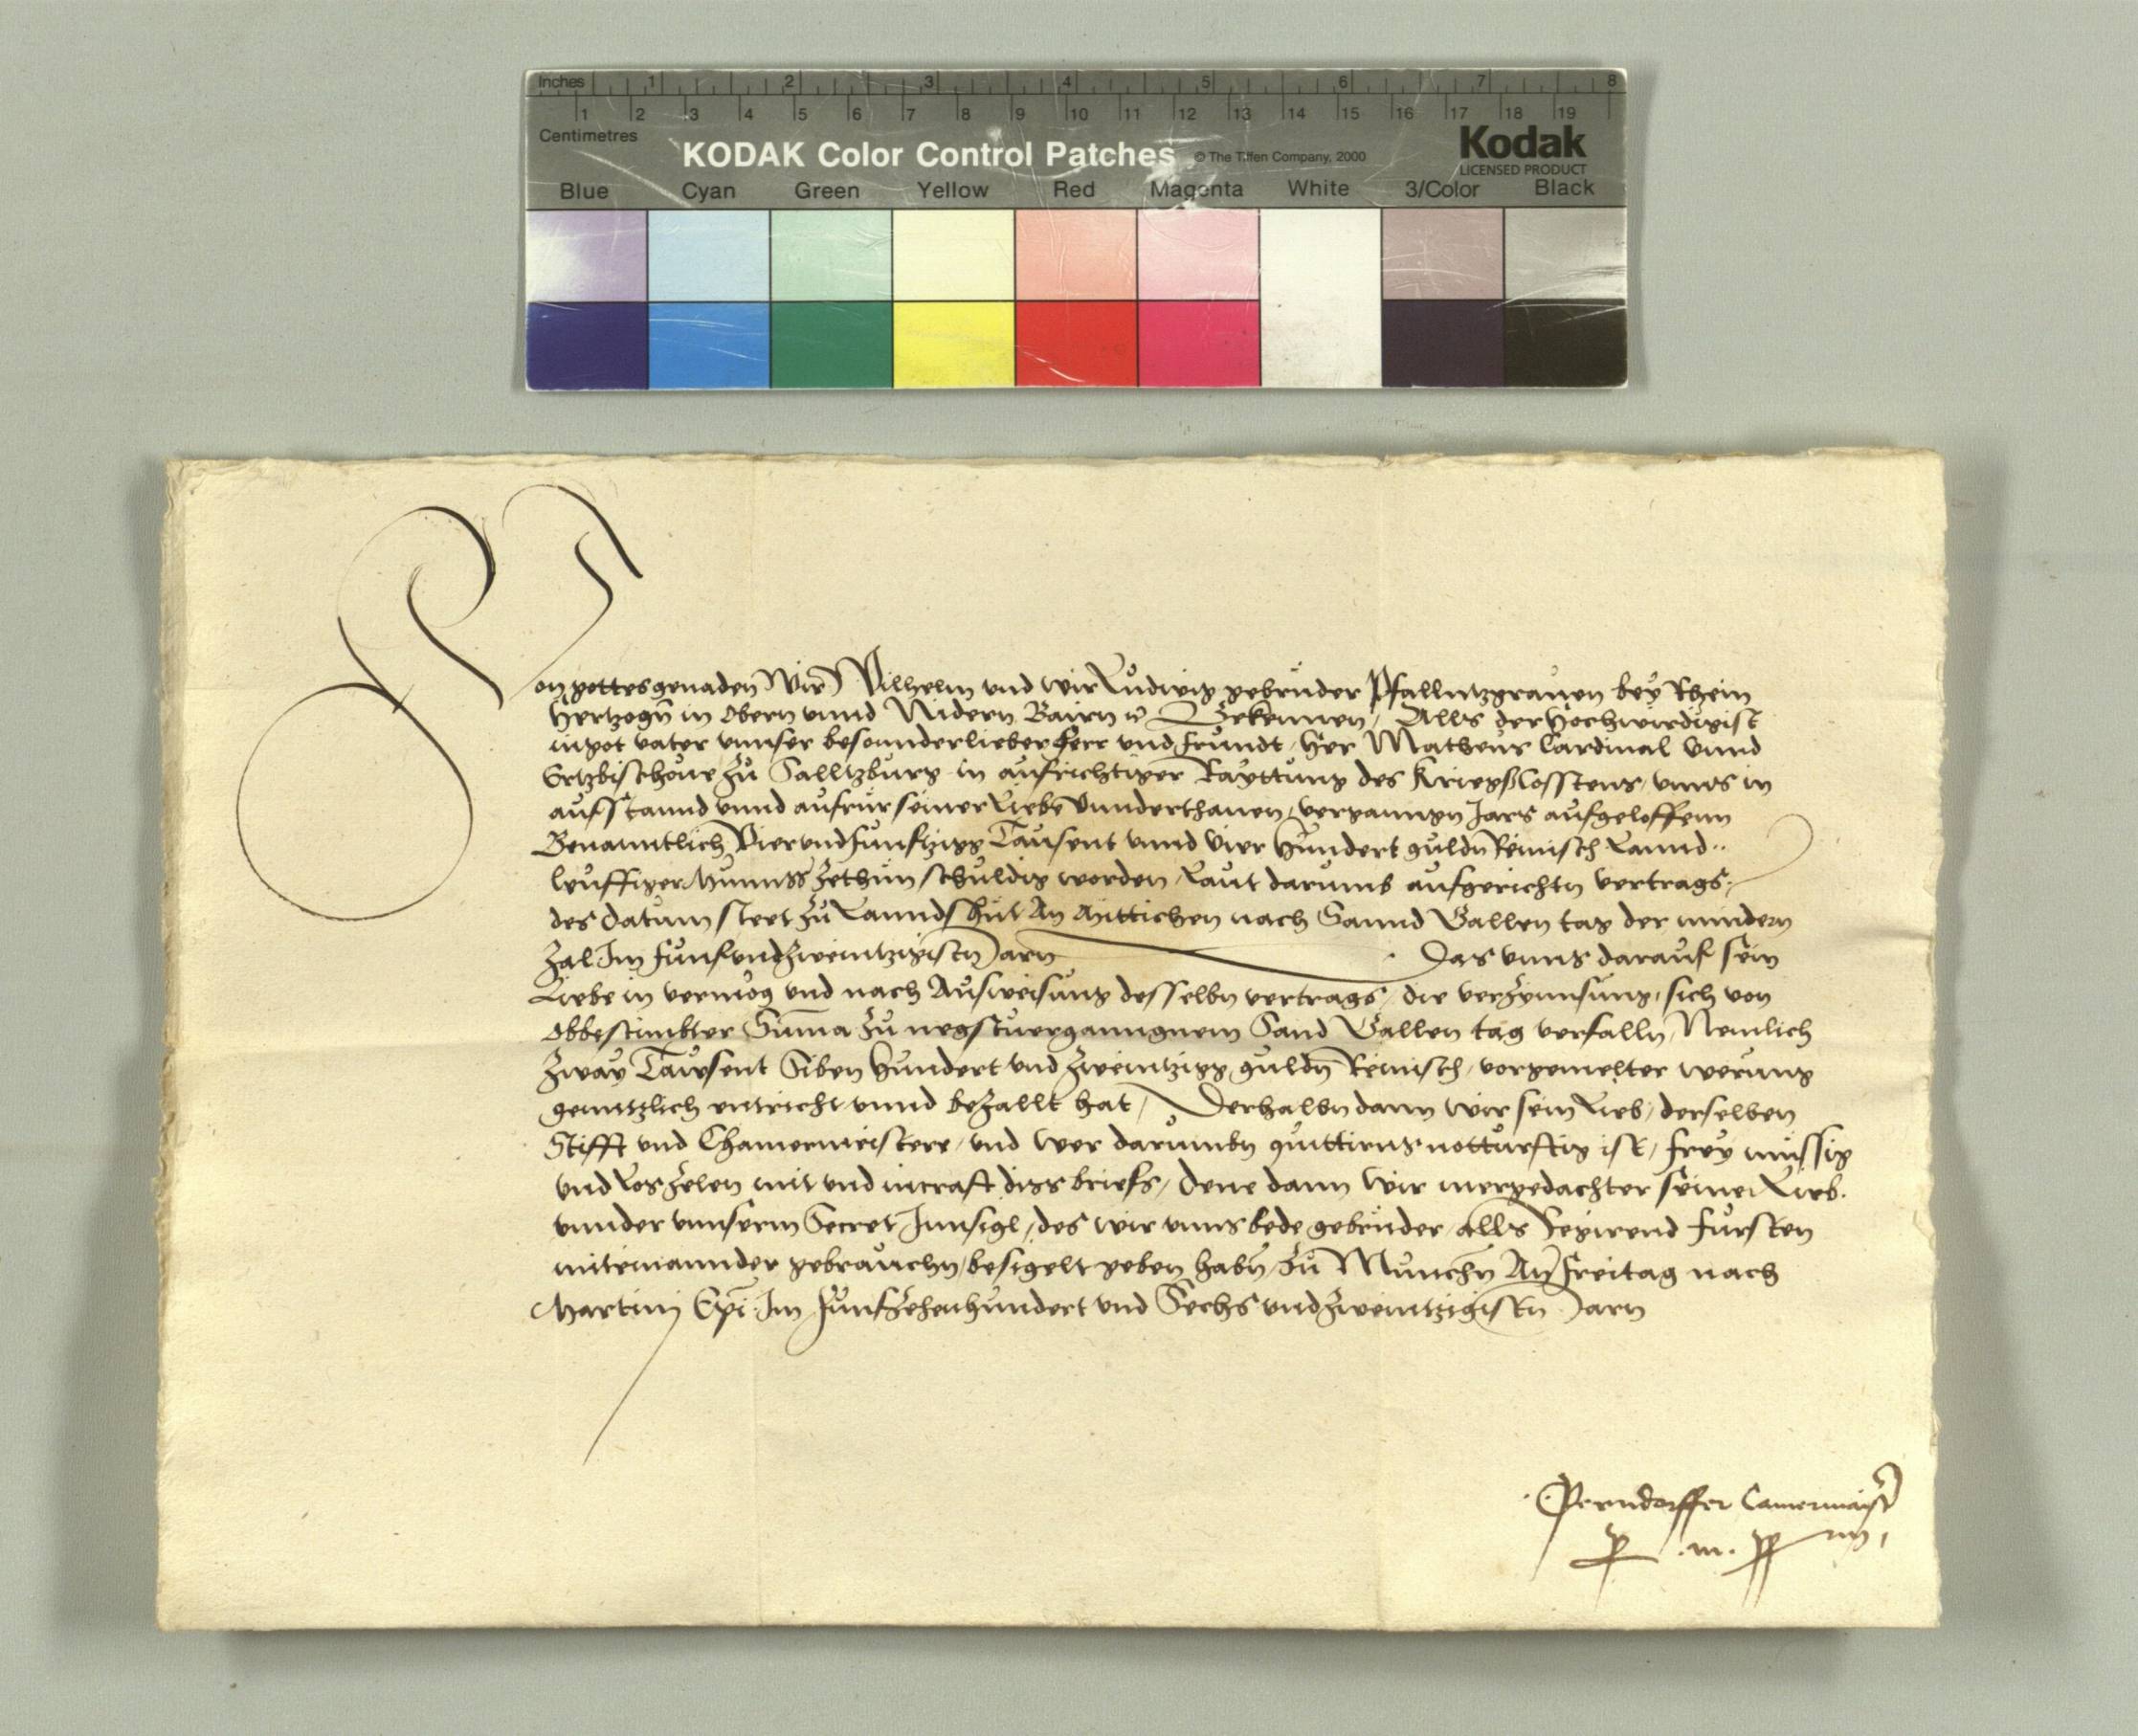 Inches 1 2 3 4 5 6 7 8
1 2 3 4 5 6 7 8 9 10 11 12 13 14 15 16 17 18 19
Centimetres
KODAK Color Control Patches © The Tiffen Company, 2000 Kodak
LICENSED PRODUCT
Blue Cyan Green Yellow Red Magenta White 3/Color Black
Von gottes genaden Wir Wilhelm vnd wir Ludwig gebrüder Pfallntzgrauen bey Rhein
Hertzogn in Obern vnnd Nidern Bairn etc Bekennen, Alls der Hochwirdigist
in got vater vnnser besonnderlieber Herr vnd frundt, her Matheus Cardinal vnnd
Ertzbischoue zu Salltzburg in aufrichtiger Rayttung des Kriegßcosstens, vnns in
aufstannd vnnd aufrur seiner Liebe vnnderthanen, verganngn Jars aufgeloffenn
Benanntlich Viervndfunfftzigg Tausent vnnd vier Hundert guldn Reinisch Lannd..
leuffiger Munnss zethun schuldig worden, Laut darumb aufgerichtn vertrags,
des datum steet zu Lanndshut An Mittichen nach Sannd Gallen tag der mindern
Zal Im funfvndzweintzigistn Jarn Das vnns darauf sein
Liebe in vermog vnd nach Ausweisung desselbn vertrags, die verzynnsung, sich von
obbestimbter Suma zu negstuerganngnem Sand Gallen tag verfalln, Nemlich
Zway Tawsent Siben Hundert vnd zweintzigg guldn Reinisch, vorgemelter werung
genntzlich entricht vnnd bezallt hat, Derhalbn dann wir sein Lieb, derselben
Stifft vnd Chamermeistere, vnd wer darumbn quittirns notturftig ist, frey mussig
vnd Los zelen mit vnd in craft diss briefs, Dene dann wir mergedachter seiner Lieb.
vnnder vnnserm Secret Innsigl, des wir vnns bede gebrüder, alls Regirend fürsten
miteinannder gebrauchn, besigelt geben habn, zu Munchn An Freitag nach
Martinj Epi Im Funfzehenhundert vnd Sechs vndzweintzigistn Jarn
Perndorffer Camermaister
m. pp